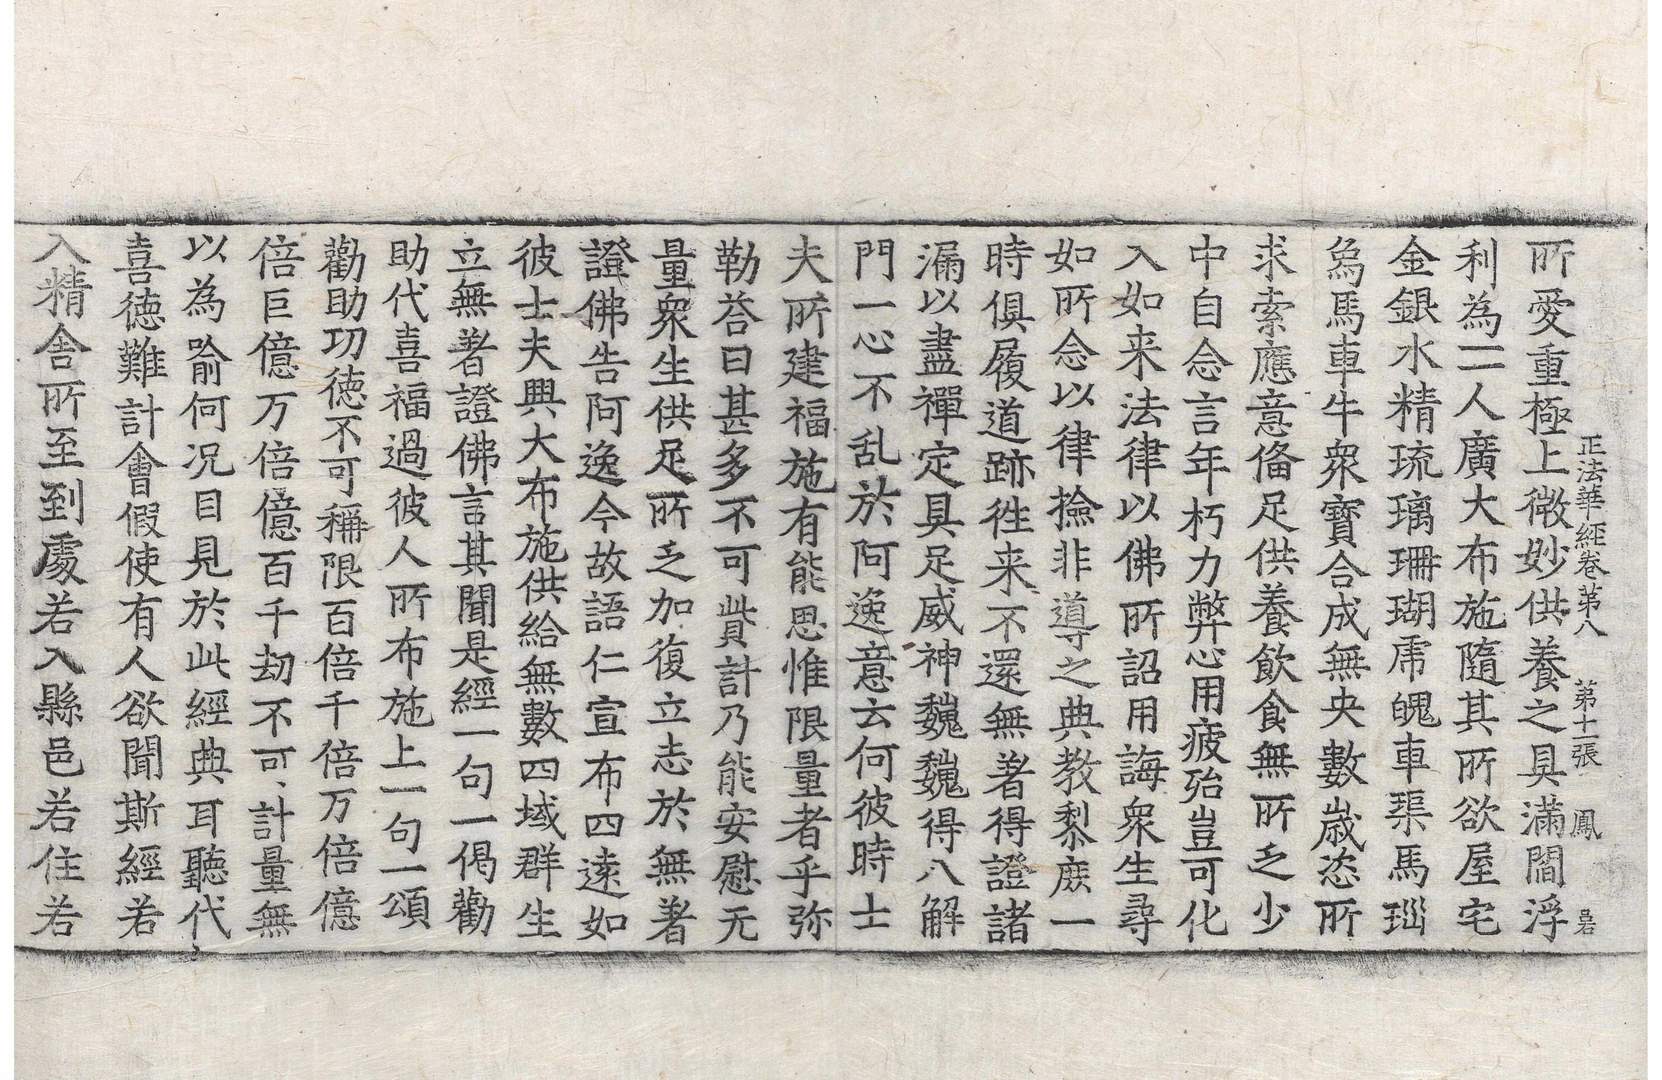 正法華經卷第八 第十一張 鳳
所愛重極上微妙供養之具滿閻浮
利為一一人廣大布施隨其所欲屋宅
金銀水精琉璃珊瑚虎魄車𤦲馬瑙
象馬車牛衆寶合成無央數歳恣所
求索應意俻足供養飲食無所乏少
中自念言年朽力弊心用疲殆豈可化
入如来法律以佛所詔用誨衆生尋
如所念以律撿非導之典教黎庶一
時俱履道跡徃来不還無著得證諸
漏以盡禪定具足威神巍巍得八解
門一心不乱於阿逸意云何彼時士
夫所建福施有能思惟限量者乎弥
勒荅曰甚多不可訾計乃能安慰无
量衆生供足所乏加復立志於無著
證佛告阿逸今故語仁宣布四遠如
彼士夫興大布施供給無數四域群生
立無著證佛言其聞是經一句一偈勸
助代喜福過彼人所布施上一句一頌
勸助功徳不可稱限百倍千倍万倍億
倍巨億万倍億百千劫不可計量無
以為喻何况目見於此經典耳聽代
喜徳難計會假使有人欲聞斯經若
入精舎所至到處若入縣邑若住若